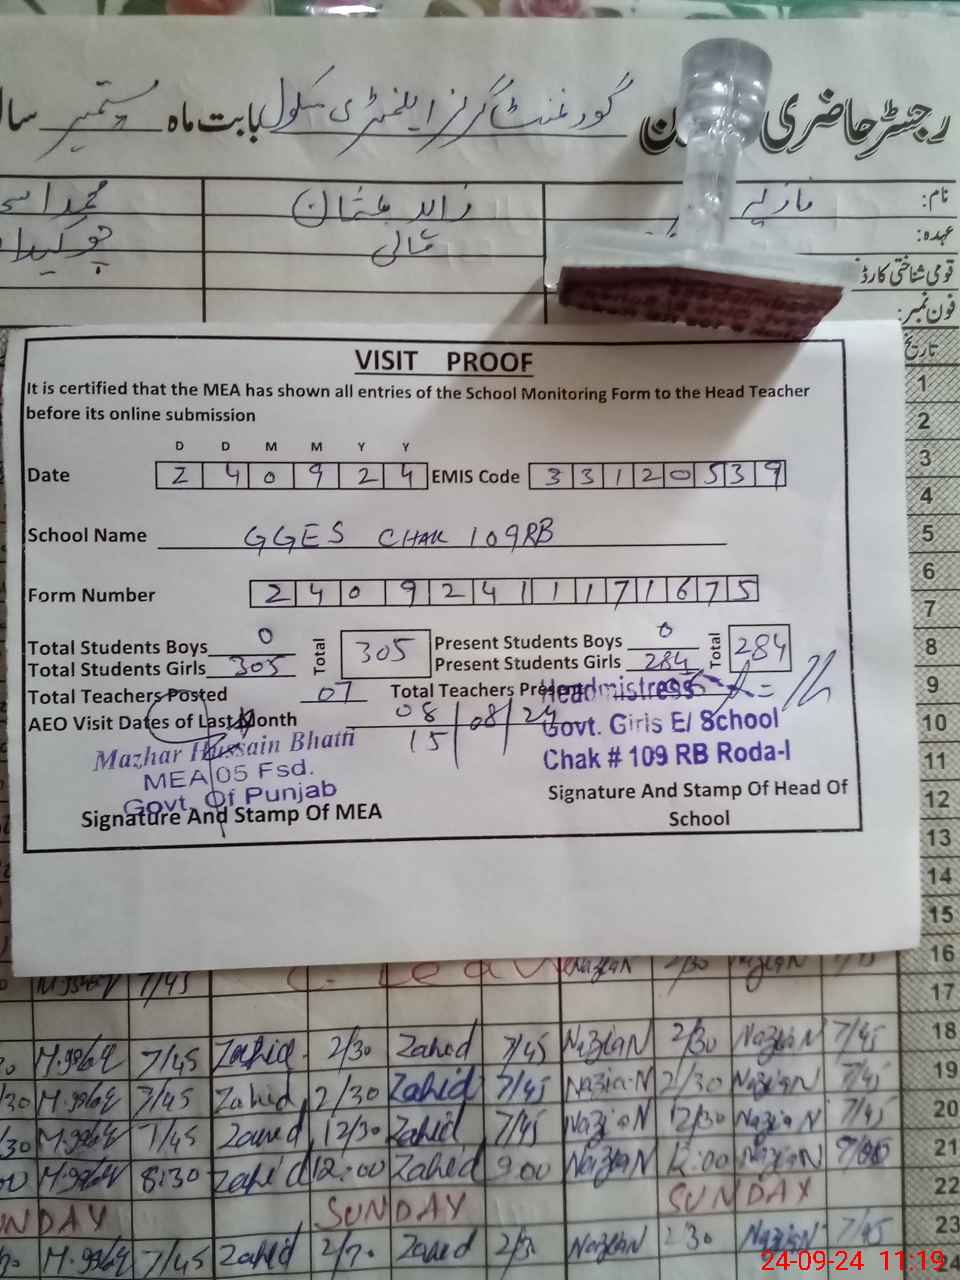 رجسٹر حاضری گورنمنٹ گرلز ایلیمنٹری سکول بابت ماہ ستمبر سال
نام: نازیہ زاہد عثمان محمد
عہدہ: مالی چوکیدار
قومی شناختی کارڈ
فون نمبر:
تاریخ
VISIT PROOF
It is certified that the MEA has shown all entries of the School Monitoring Form to the Head Teacher
before its online submission
D D M M Y Y
Date 2 4 0 9 2 4 EMIS Code 3 3 1 2 0 5 3 9
School Name GGES CHAK 109RB
Form Number 2 4 0 9 2 4 1 1 1 7 1 6 7 5
Total Students Boys 0 Total 305 Present Students Boys 0 Total 284
Total Students Girls 305 Present Students Girls 284
Total Teachers Posted 07 Total Teachers Present
AEO Visit Dates of Last Month 08 08 24
15
Mazhar Hussain Bhatti
MEA 05 Fsd.
Govt. Of Punjab
Signature And Stamp Of MEA
Headmistress
Govt. Girls E/ School
Chak # 109 RB Roda-I
Signature And Stamp Of Head Of
School
1
2
3
4
5
6
7
8
9
10
11
12
13
14
15
16
17
7/45 Zahid 2/30 Zahid 7/45 Nazia N 2/30 Nazia N 7/45 18
/30 7/45 Zahid 2/30 Zahid 7/45 Nazia N 2/30 Nazia N 7/45 19
/30 7/45 Zahid 12/30 Zahid 7/45 Nazia N 12/30 Nazia N 7/45 20
8:30 Zahid 12:00 Zahid 9:00 Nazia N 12:00 Nazia N 21
SUNDAY SUNDAY SUNDAY 22
7/45 Zahid Zahid Nazia N 2 30 Nazia N 7/45 23
24
24-09-24 11:19